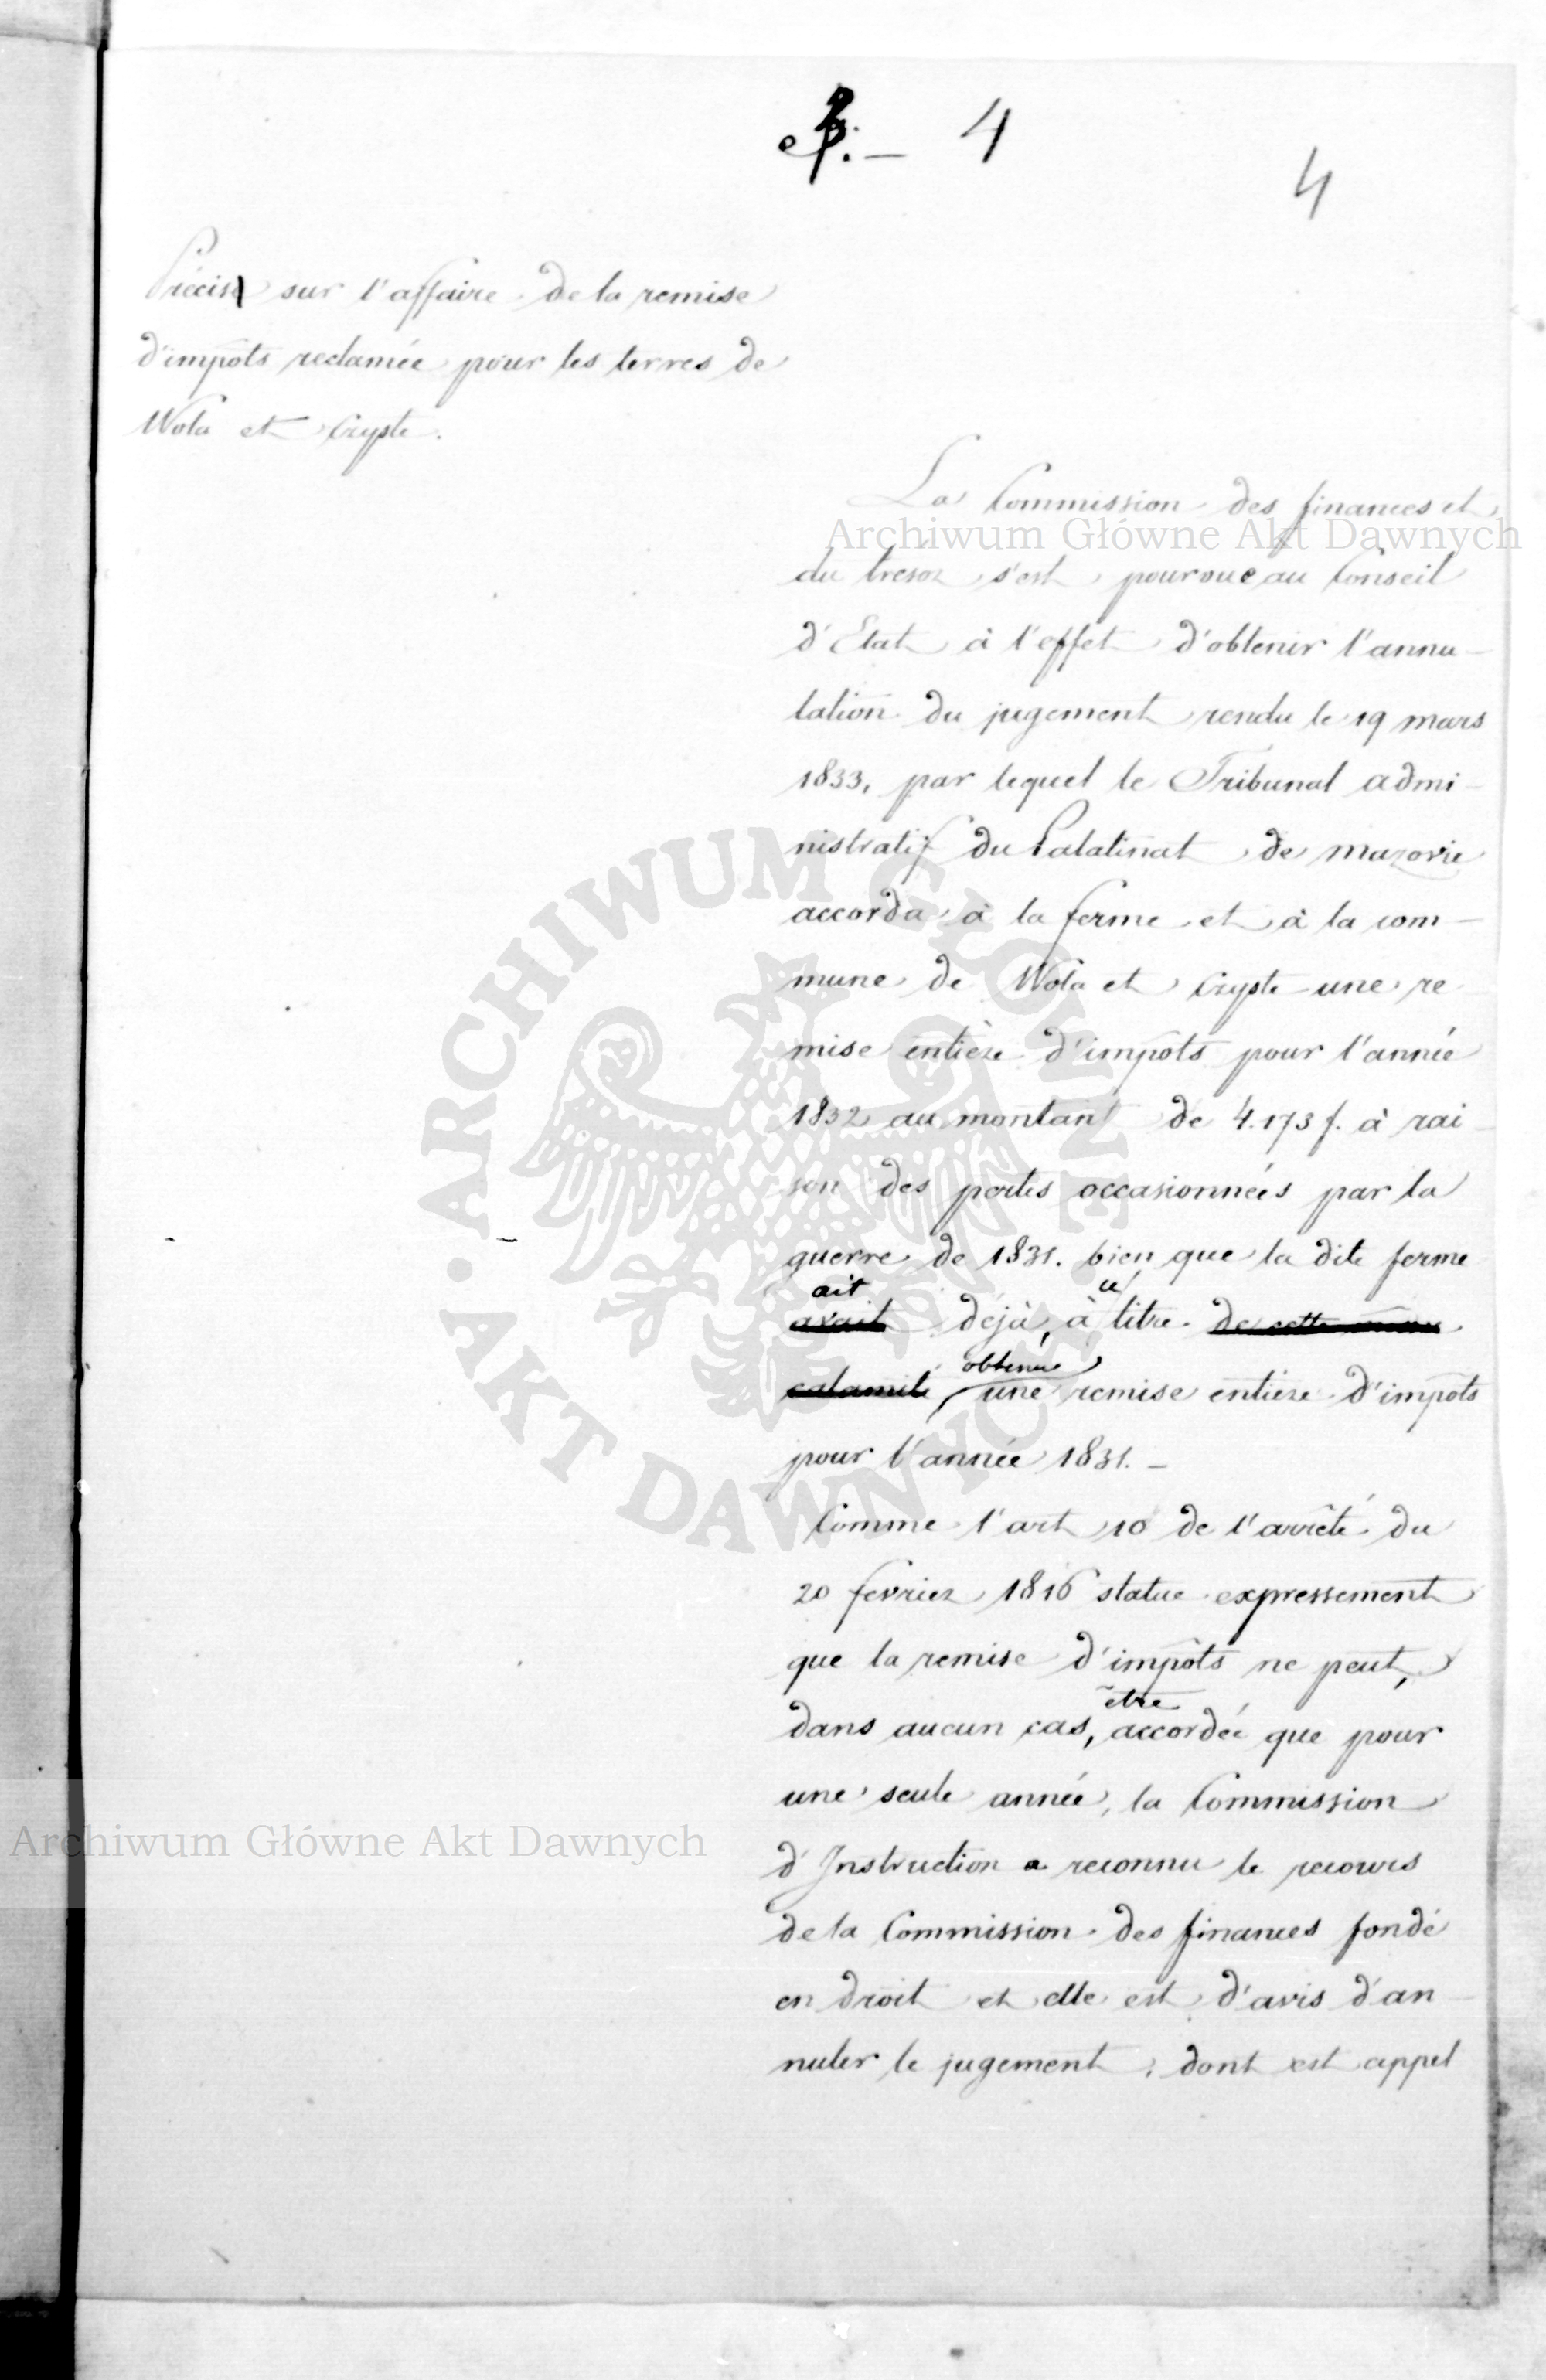 4
4
Précis sur l'affaire de la remise
d'impôts reclamée pour les terres de
Wola et Czyste.
La Commission des finances et
du tresor s'est pourvue au Conseil
d'Etat à l'effet d'obtenir l'annu-
lation du jugement rendu le 19 mars
1833, par lequel le Tribunal admi-
nistratif du Palatinat de Mazovie
accorda à la ferme et à la com-
mune de Wola et Czyste une re-
mise entière d'impôts pour l'année
1832 au montant de 4.173 f. à rai-
son des pertes occasionnées par la
guerre de 1831. bien que la dite ferme
ait ce
avait déjà, à titre de cette même
obtenu
calamité, une remise entière d'impôts
pour l'année 1831. -
Comme l'art 10 de l'arrêté du
20 fevrier 1816 statue expressement
que la remise d'impôts ne peut,
être
dans aucun cas, accordée que pour
une seule année, la Commission
d'Instruction a reconnu le recours
de la Commission des finances fondé
en droit et elle est d'avis d'an-
nuler le jugement dont est appel
Archiwum Główne Akt Dawnych
Archiwum Główne Akt Dawnych
ARCHIWUM GŁÓWNE · AKT DAWNYCH ·